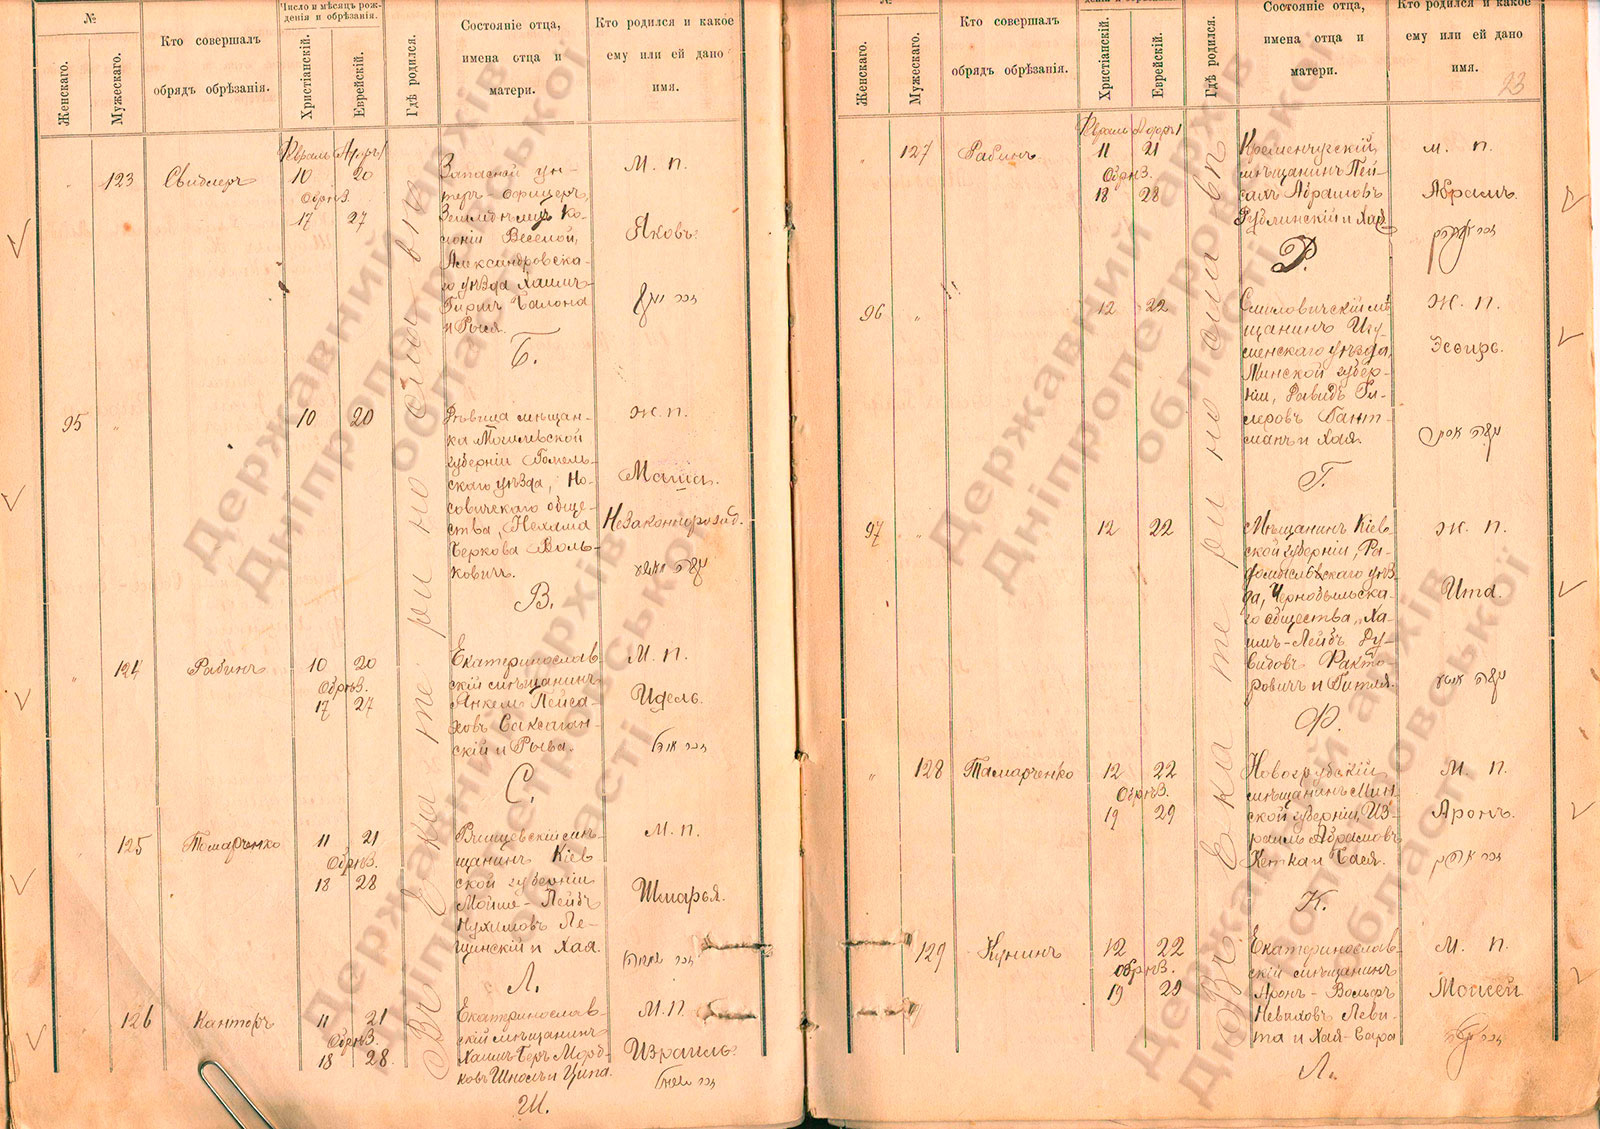 №
Женскаго.
Мужескаго.
Кто совершалъ
обрядъ обрѣзанія.
Число и мѣсяцъ рож-
денія и обрѣзанія.
Христіанскій.
Еврейскій.
Гдѣ родился.
Состояніе отца,
имена отца и
матери.
Кто родился и какое
ему или ей дано
имя.
Въ Екатеринославѣ
123
Свидлеръ
Февраль
10 20
Обрѣз.
17 27
Запасной ун-
теръ-офицеръ,
Земледѣлецъ ко-
лоніи Веселой,
Александровска-
го уѣзда Хаимъ
и Рыся.
Б.
М. п.
Яковъ.
זכר יעקב
95
10 20
Дѣвица мѣщан-
ка Могилевской
губерніи Гомель-
скаго уѣзда, Но-
совичскаго обще-
ства, Нехама
Беркова Воль-
ковичъ.
В.
Ж. п.
Маша.
Незаконнорожд.
נקבה מאשע
124
Рабинъ
10 20
Обрѣз.
17 27
Екатеринослав-
скій мѣщанинъ
Янкель Пейса-
ховъ Саксаган-
скій и Рыва.
С.
М. п.
Идель.
זכר אידל
125
Томарченко
11 21
Обрѣз.
18 28
мѣ-
щанинъ Кіев
ской губерніи
Мойше-Лейбъ
Нухимовъ Ле-
щинскій и Хая.
Л.
М. п.
Шмарья.
זכר שמריה
126
Канторъ
11 21
Обрѣз.
18 28.
Екатеринослав-
скій мѣщанинъ
Хаимъ-Беръ Морд-
ковъ и Ципа.
Ш.
М. п.
Израиль.
זכר ישראל
№
Женскаго.
Мужескаго.
Кто совершалъ
обрядъ обрѣзанія.
денія и обрѣзанія.
Христіанскій.
Еврейскій.
Гдѣ родился.
Состояніе отца,
имена отца и
матери.
Кто родился и какое
ему или ей дано
имя.
23
Въ Екатеринославѣ
127
Рабинъ
Февраль
11 21
Обрѣз.
18 28
Кременчугскій
мѣщанинъ Пей-
сахъ Абрамовъ
Рублинскій и Хая
Р.
м. п.
Абрамъ.
זכר אברהם
96
12 22
Смиловичскій мѣ
щанинъ Игу-
менскаго уѣзда,
Минской губер-
ніи, Давидъ Ги-
леровъ Гант-
манъ и Хая.
Г.
Ж. п.
Эсфирь.
נקבה אסתר
97
12 22
Мѣщанинъ Кіев
ской губерніи, Ра-
домысльскаго уѣз
да, Чернобыльска-
го общества, Ха-
имъ-Лейбъ Ду-
видовъ Факто-
ровичъ и Гитля.
Ф.
Ж. п.
Ита.
נקבה איטע
128
Тамарченко
12 22
Обрѣз.
19 29
Новогрубскій
мѣщанинъ Мин
ской губерніи Из-
раиль Абрамовъ
Кетка и Бася.
К.
М. п.
Аронъ.
זכר אהרן
129
Кунинъ
12 22
обрѣз.
19 29
Екатеринослав-
скій мѣщанинъ
Аронъ-Вольфъ
Невиховъ Леви-
та и Хая-Сара
Л.
М. п.
Моисей
זכר משה
Державний архів
Дніпропетровської
області